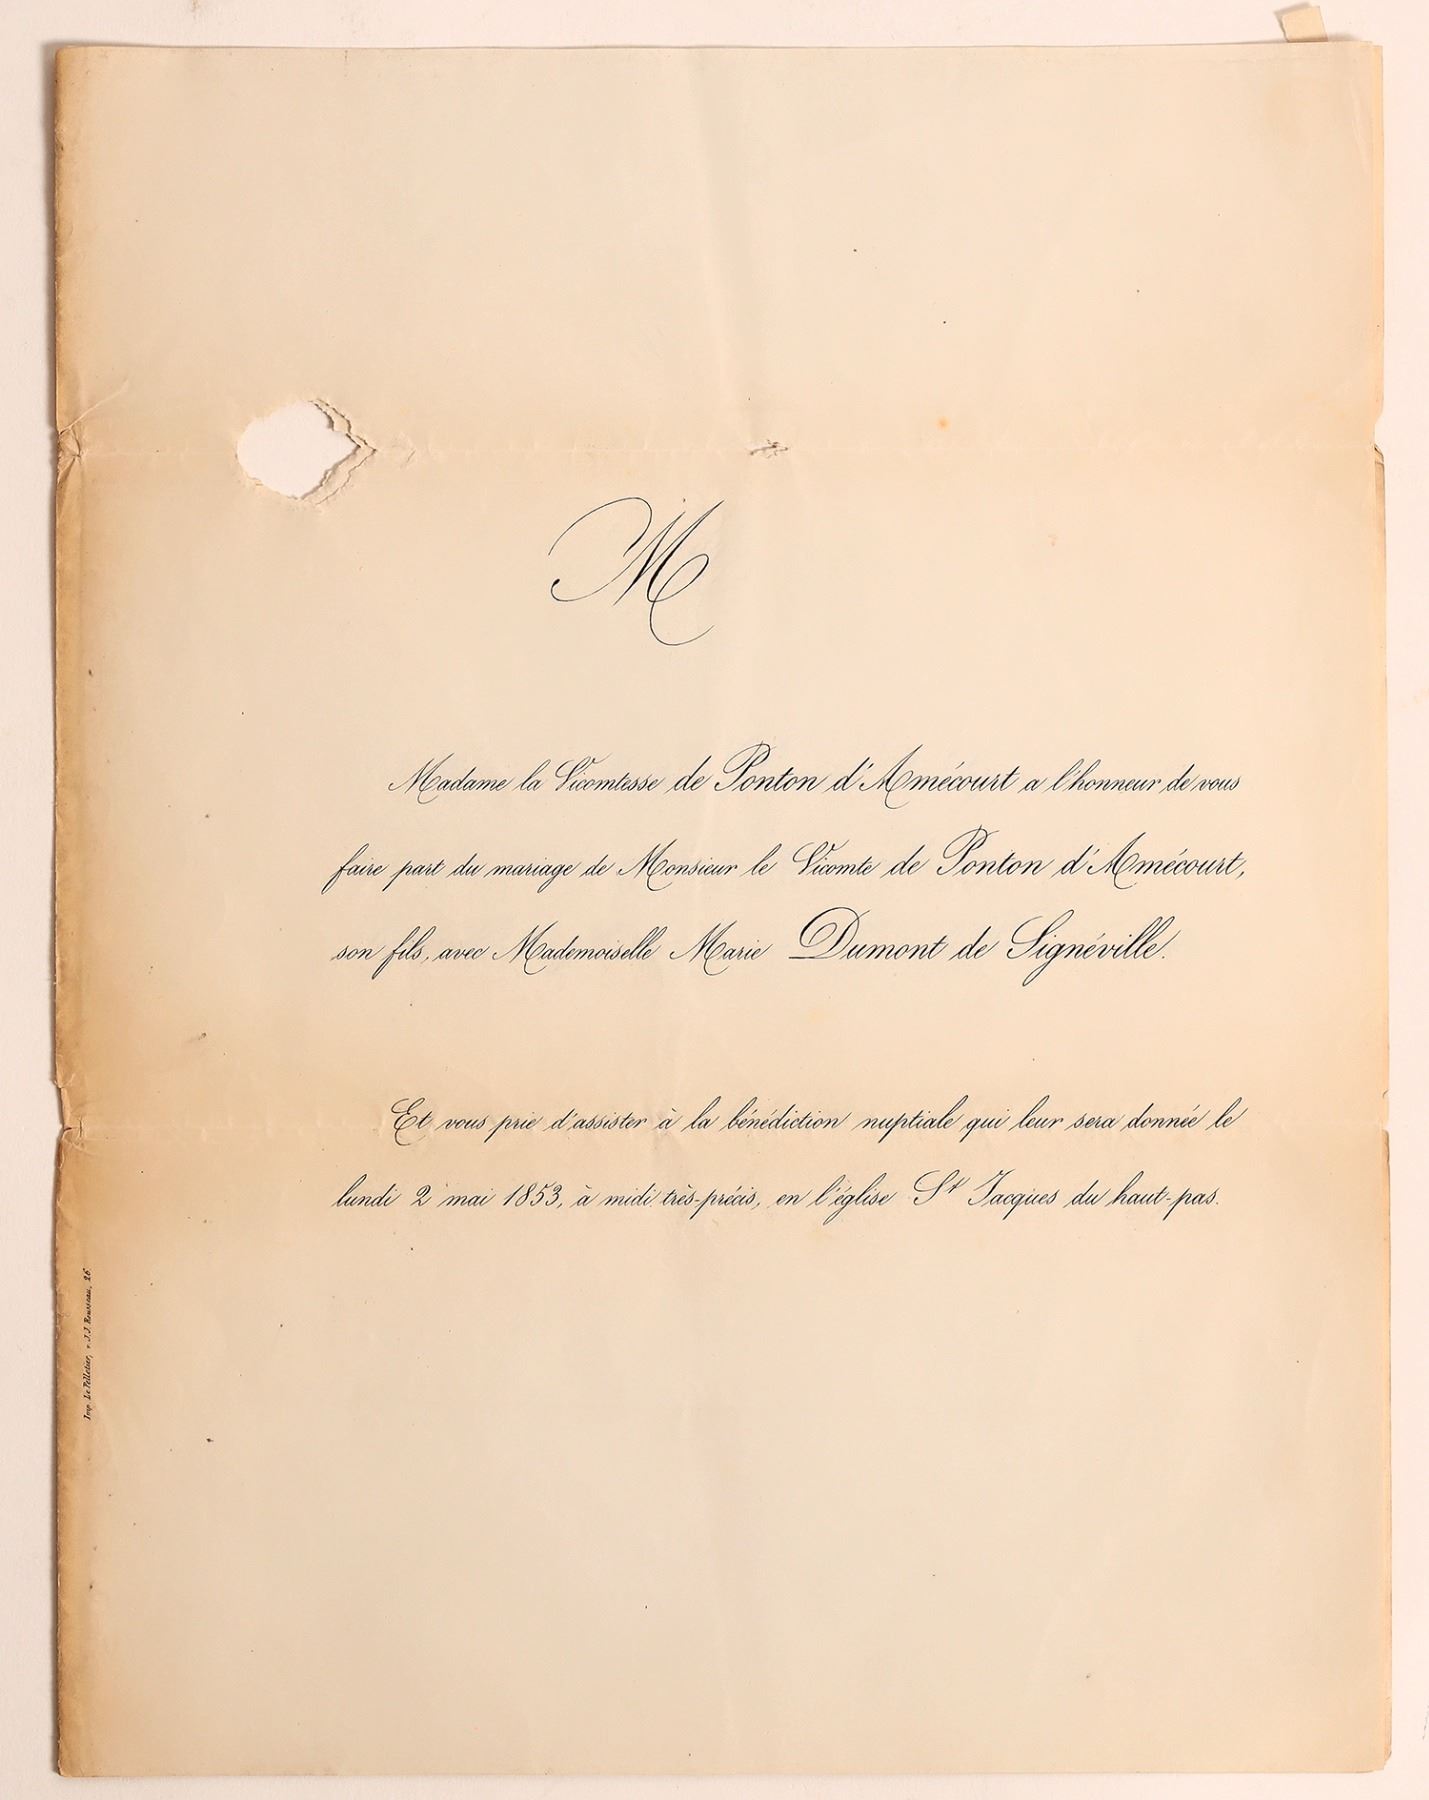 M
Madame la Vicomtesse de Ponton d'Amécourt a l'honneur de vous
faire part du mariage de Monsieur le Vicomte de Ponton d'Amécourt,
son fils, avec Mademoiselle Marie Dumont de Signéville.
Et vous prie d'assister à la bénédiction nuptiale qui leur sera donnée le
lundi 2 mai 1853, à midi très-précis, en l'église St Jacques du haut-pas.
Imp. Le Pelletier, r. J.J. Rousseau, 26